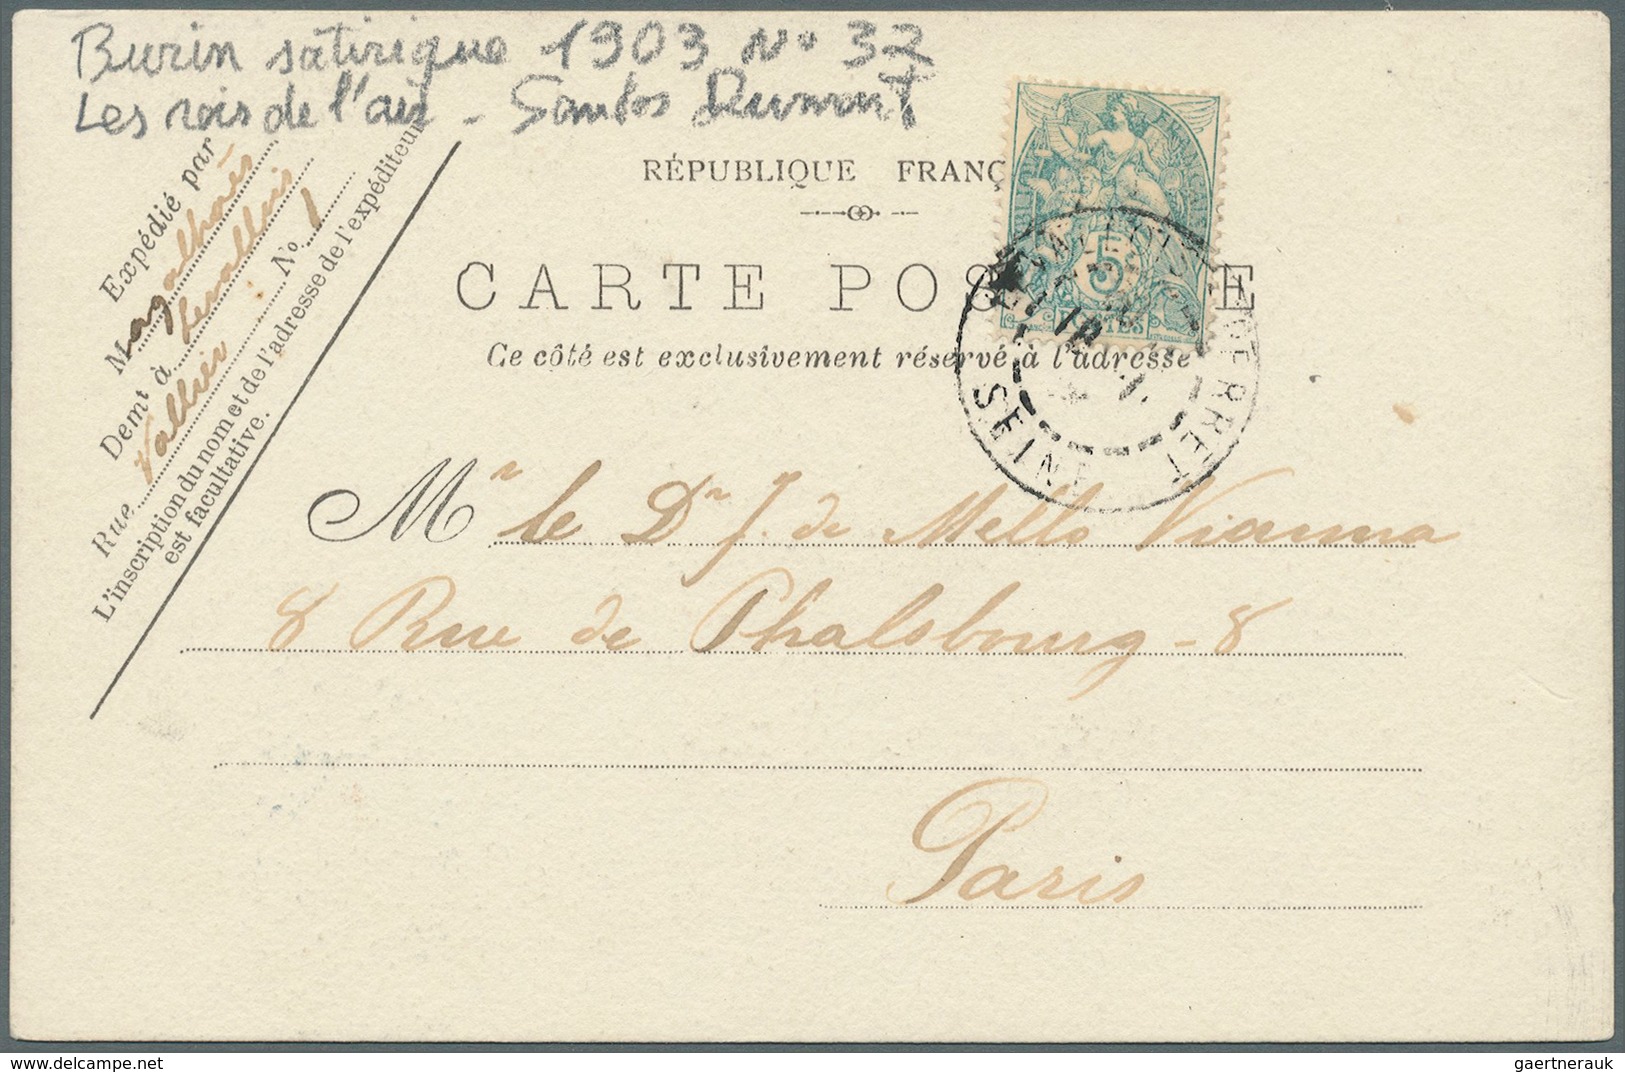 Burin satirique 1903 No 32
Les rois de l'air - Santos Dumont
Expédié par
M Magalhaés
Demt à Levallois
Rue Vallier No 1
L'inscription du nom et de l'adresse de l'expéditeur
est facultative.
RÉPUBLIQUE FRANÇ
CARTE POS E
Ce côté est exclusivement réservé à l'adresse
5
POSTES
LEVALLOIS PERRET
SEINE
Mr le Dr J. de Mello Vianna
8 Rue de Phalsbourg - 8
Paris
gaertnerauk